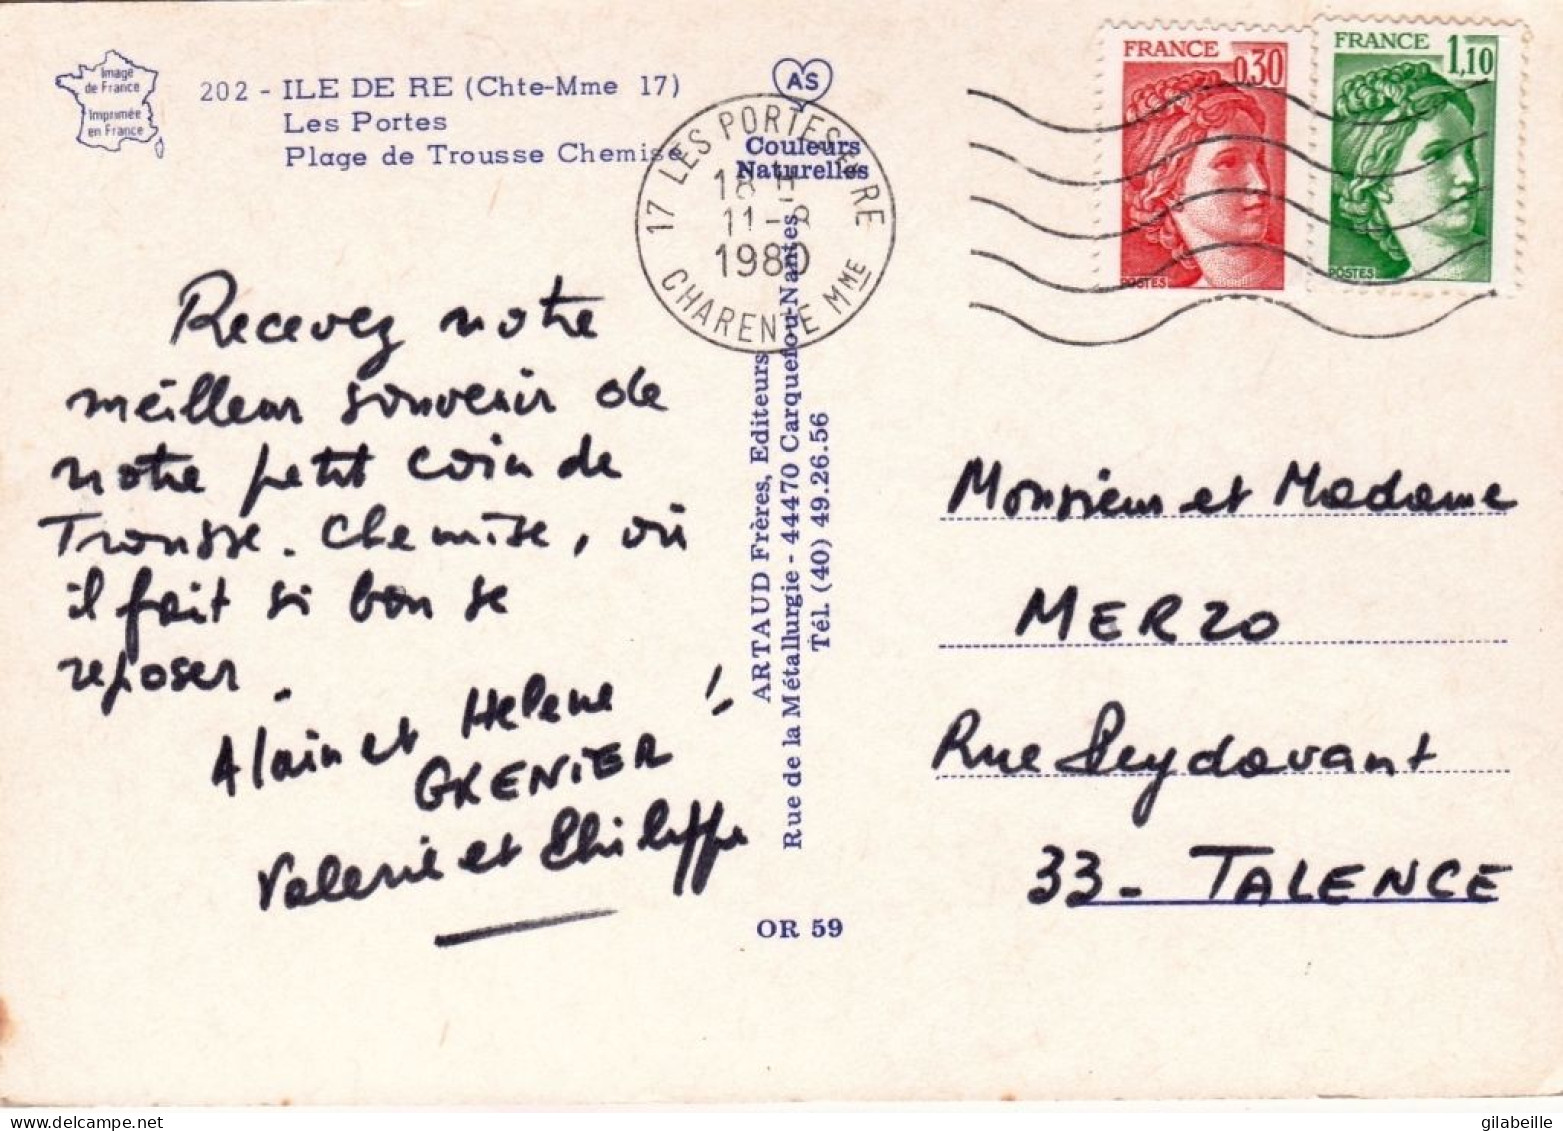 Image
de France
Imprimée
en France
202 - ILE DE RE (Chte-Mme 17)
Les Portes
Plage de Trousse Chemise
AS
Couleurs
Naturelles
17 LES PORTES EN RE
18 H
11-8
1980
CHARENTE MME
FRANCE
0,30
POSTES
FRANCE
1,10
POSTES
Recevez notre
meilleur souvenir de
notre petit coin de
Trousse. Chemise, où
il fait si bon se
reposer.
Alain et Helene !
GRENIER
Valerie et Philippe
ARTAUD Frères, Editeurs
Rue de la Métallurgie - 44470 Carquefou-Nantes
Tél. (40) 49.26.56
OR 59
Monsieur et Madame
MERZO
Rue Peydavant
33 - TALENCE
gilabeille